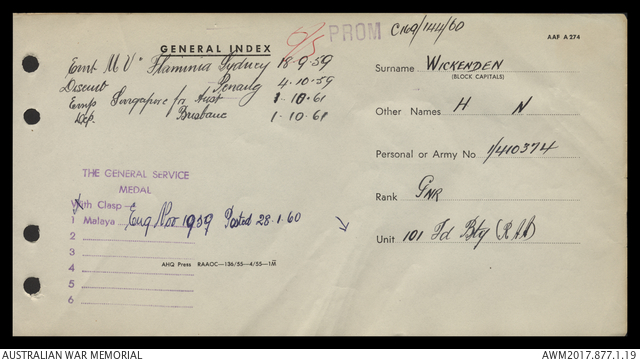 GENERAL INDEX
PROM
C169/144/60
AAF A 274
Embt M V "Flaminia Sydney 18-9-59
Disembt Penang 4.10.59
Emp Singapore for Aust 1-10.61
Dep. Brisbane 1-10.61
Surname WICKENDEN
(BLOCK CAPITALS)
Other Names H N
Personal or Army No 1/410374
Rank GNR
Unit 101 Fd Bty (RAA)
THE GENERAL SERVICE
MEDAL
With Clasp
1 Malaya Eng Nov 1959 Posted 28.1.60
2
3
4
5
6
AHQ Press RAAOC—136/55—4/55—1M
AUSTRALIAN WAR MEMORIAL
AWM2017.877.1.19